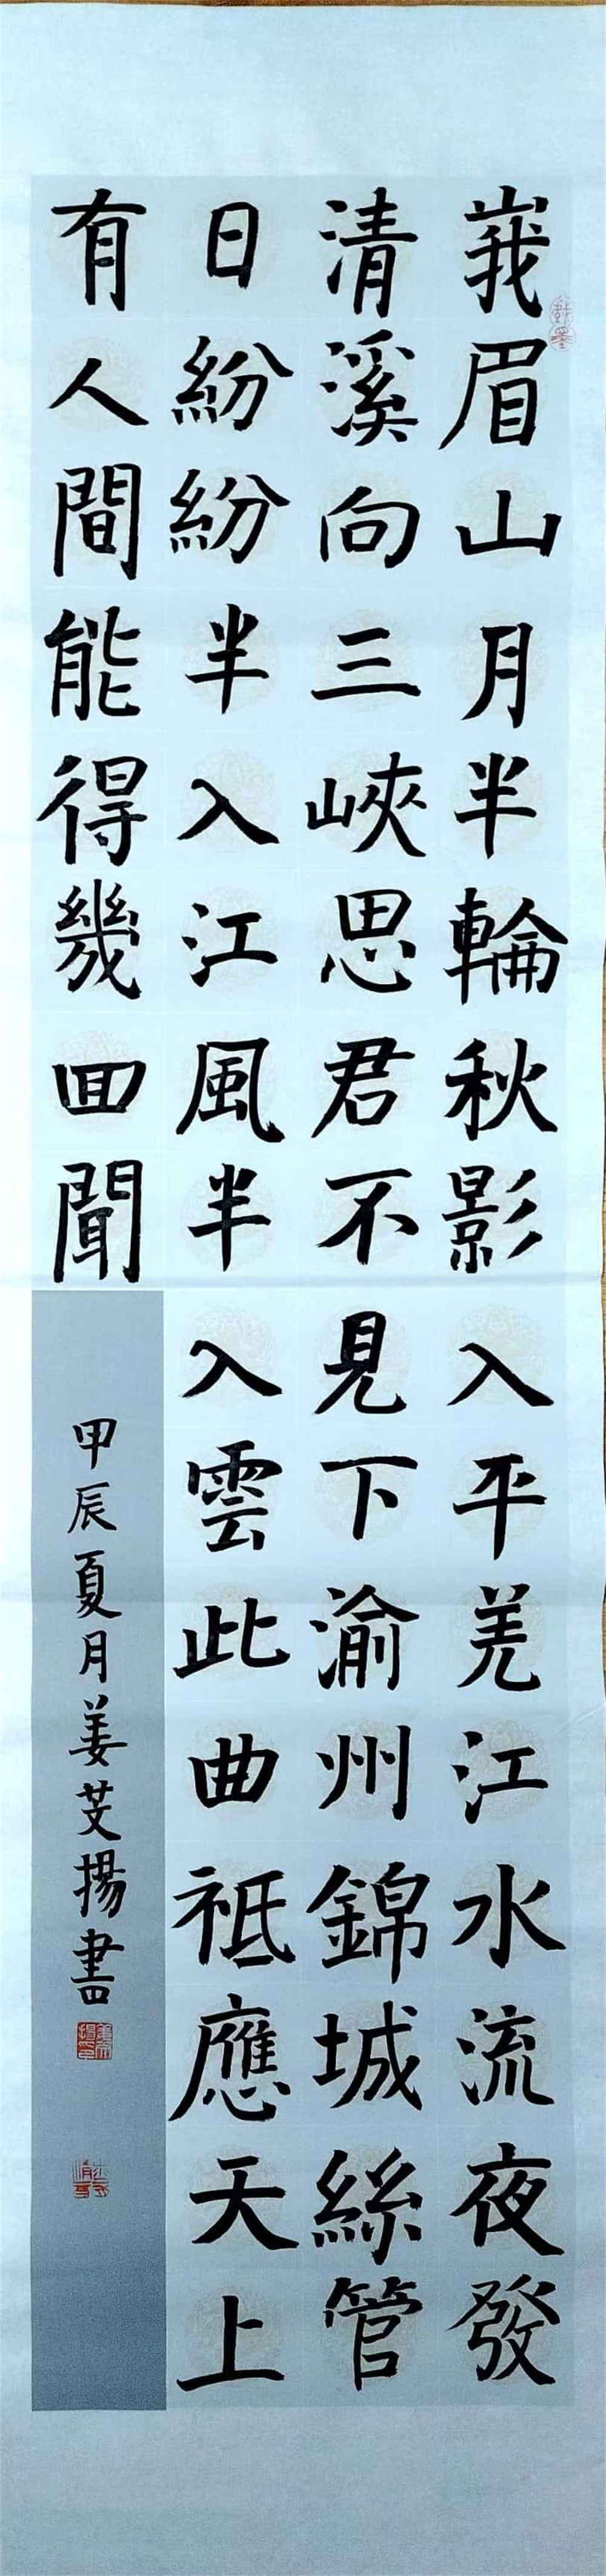 峩眉山月半輪秋影入平羌江水流夜發
清溪向三峽思君不見下渝州錦城絲管
日紛紛半入江風半入雲此曲祗應天上
有人間能得幾回聞
甲辰夏月姜芟揚書